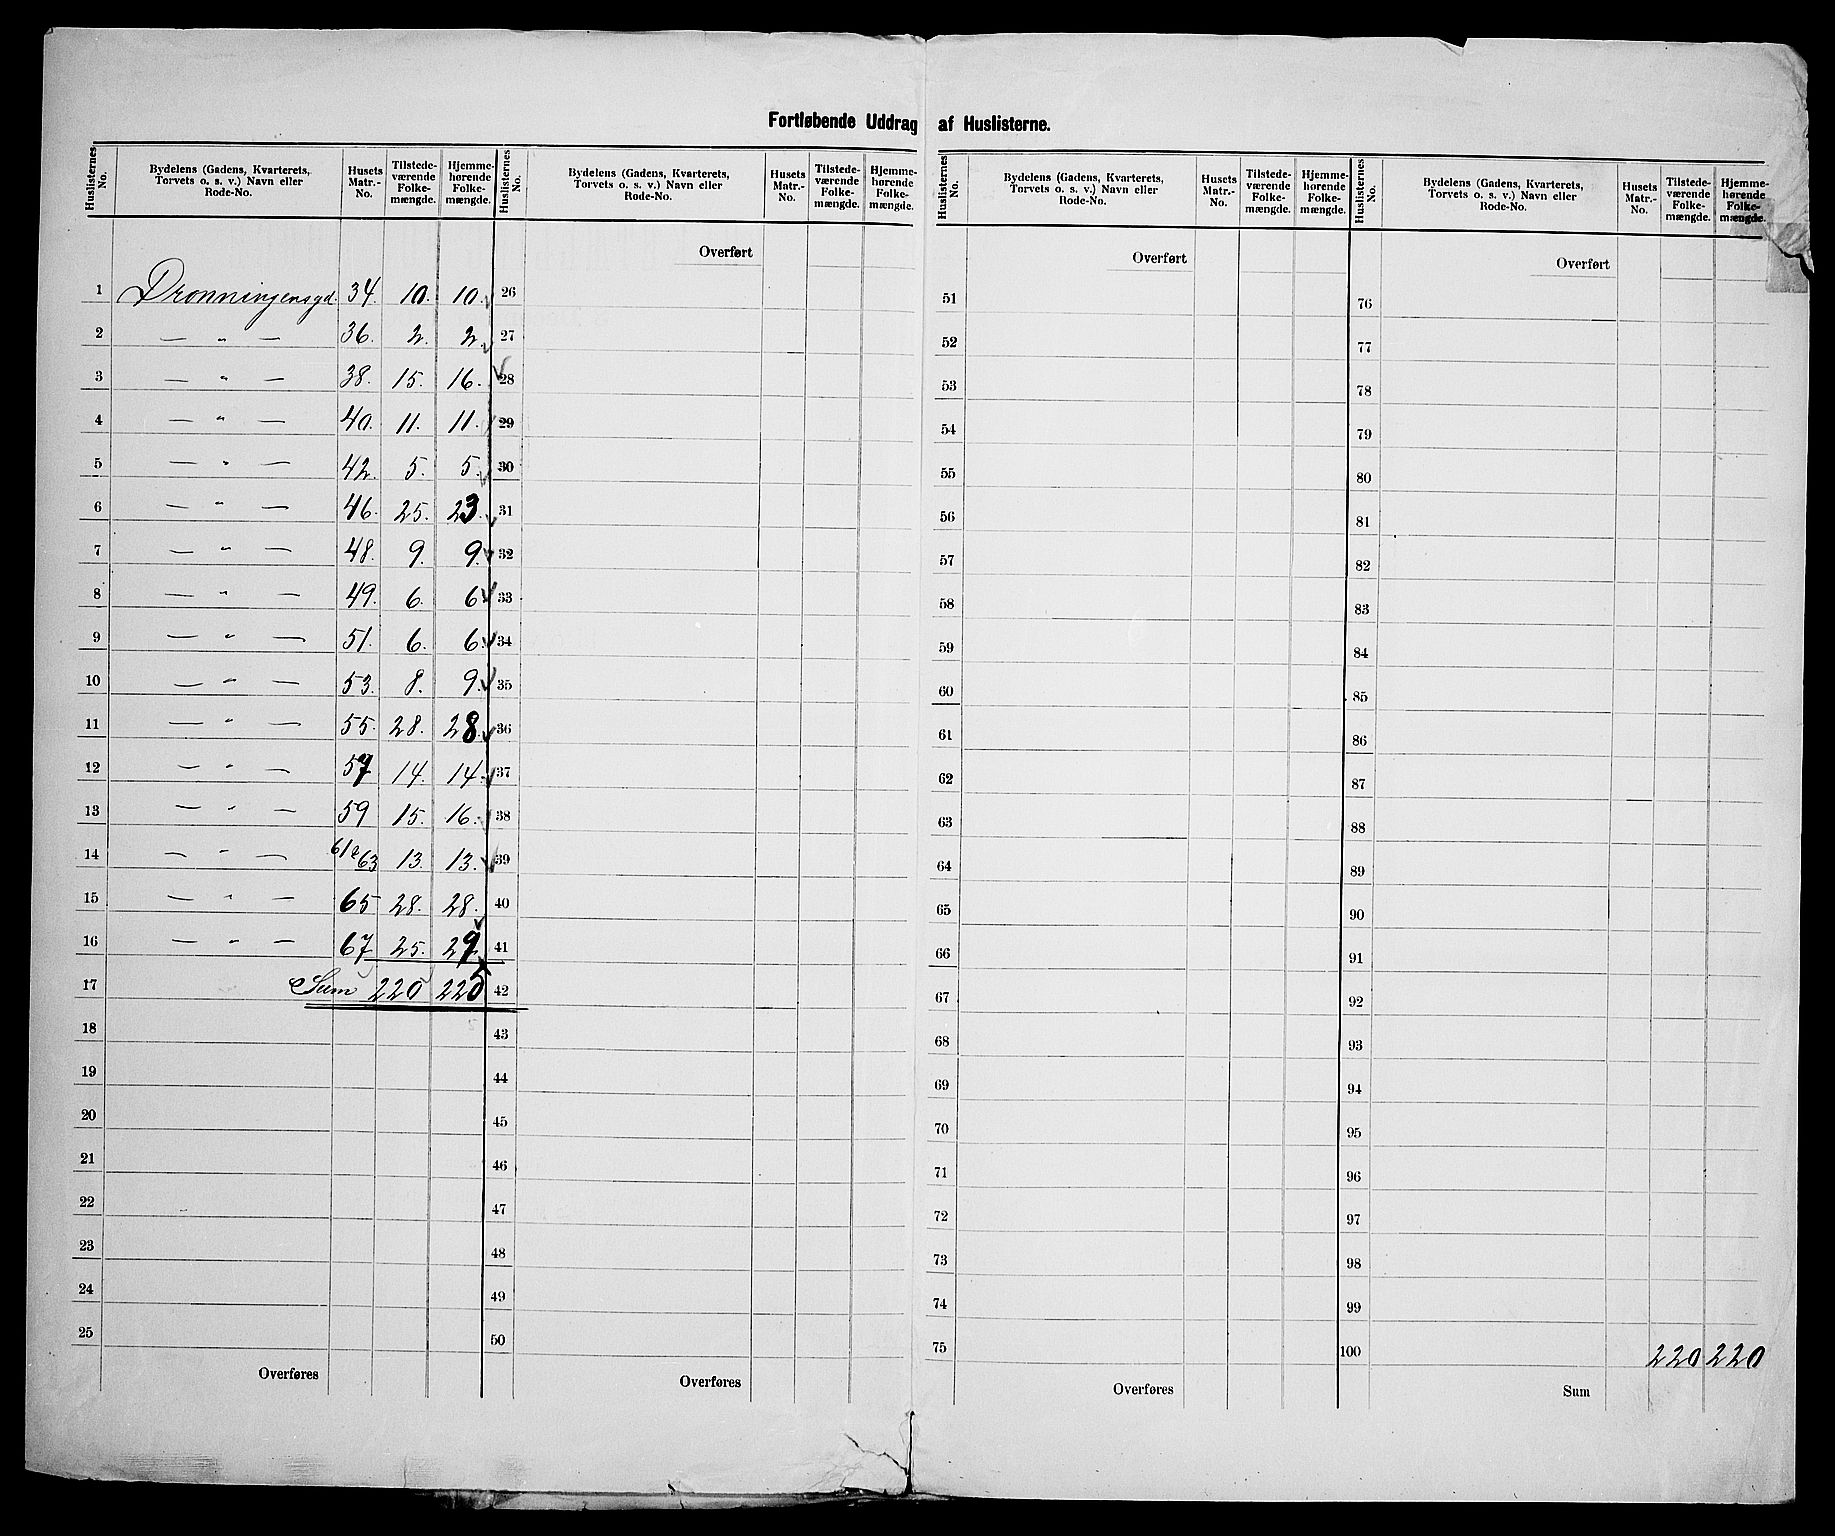 Fortløbende Uddrag af Huslisterne.
Huslisternes No. | Bydelens (Gadens, Kvarterets, Torvets o. s. v.) Navn eller Rode-No. | Husets Matr.-No. | Tilstede-værende Folke-mængde. | Hjemme-hørende Folke-mængde.
1 Dronningensgd. 34 10. 10.
2 — „ — 36. 2. 2.
3 — „ — 38. 15. 16.
4 — „ — 40. 11. 11.
5 — „ — 42. 5. 5.
6 — „ — 46. 25. 23.
7 — „ — 48. 9. 9.
8 — „ — 49. 6. 6
9 — „ — 51. 6. 6.
10 — „ — 53. 8. 9.
11 — „ — 55. 28. 28.
12 — „ — 57 14. 14.
13 — „ — 59 15. 16.
14 — „ — 61 & 63 13. 13.
15 — „ — 65 28. 28.
16 — „ — 67 25. 29.
17 Sum 220 225
18
19
20
21
22
23
24
25
Overføres
Huslisternes No. | Bydelens (Gadens, Kvarterets, Torvets o. s. v.) Navn eller Rode-No. | Husets Matr.-No. | Tilstede-værende Folke-mængde. | Hjemme-hørende Folke-mængde.
Overført
26
27
28
29
30
31
32
33
34
35
36
37
38
39
40
41
42
43
44
45
46
47
48
49
50
Overføres
Huslisternes No. | Bydelens (Gadens, Kvarterets, Torvets o. s. v.) Navn eller Rode-No. | Husets Matr.-No. | Tilstede-værende Folke-mængde. | Hjemme-hørende Folke-mængde.
Overført
51
52
53
54
55
56
57
58
59
60
61
62
63
64
65
66
67
68
69
70
71
72
73
74
75
Overføres
Huslisternes No. | Bydelens (Gadens, Kvarterets, Torvets o. s. v.) Navn eller Rode-No. | Husets Matr.-No. | Tilstede-værende Folke-mængde. | Hjemme-hørende Folke-mængde.
Overført
76
77
78
79
80
81
82
83
84
85
86
87
88
89
90
91
92
93
94
95
96
97
98
99
100 220 220
Sum